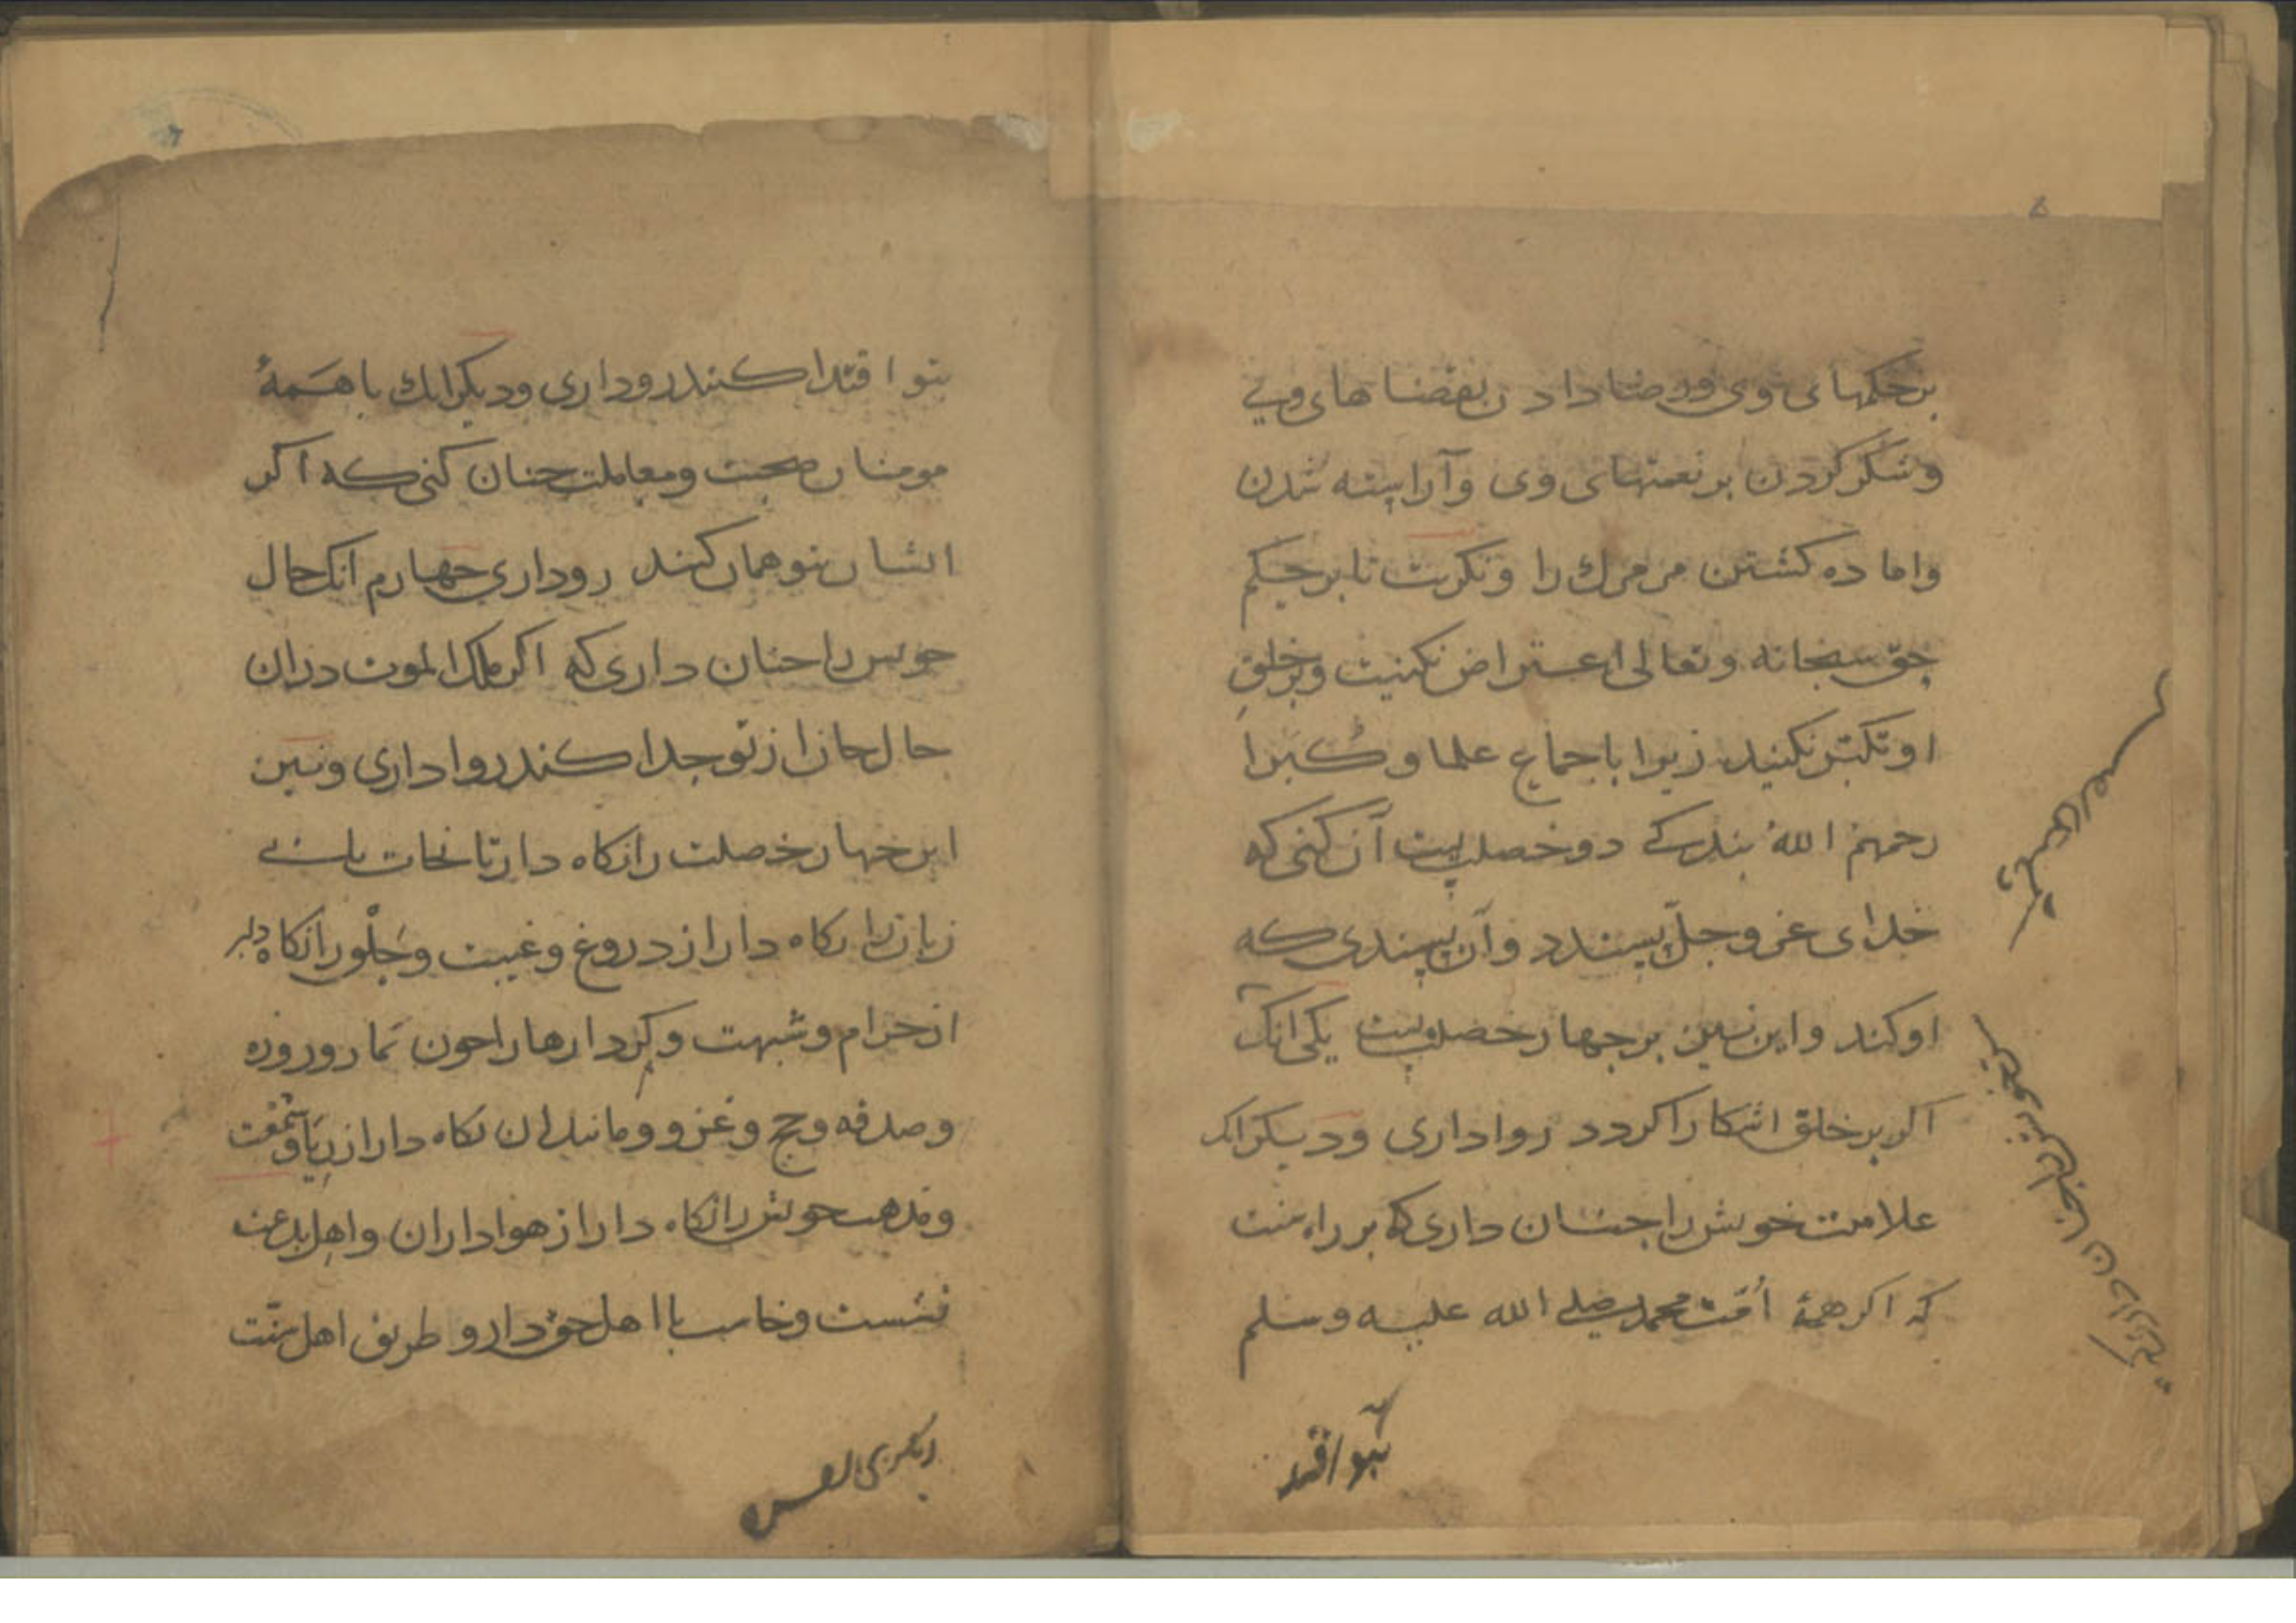 بر حکمهای وی و رضا دادن بقضاهای وی
وشکر کردن بر نعمتهای وی وآراسته شدن
واماده کشتن مر مرك را ونکرت تا بر حکم
حق سبحانه وتعالی اعتراض نکنیت وبر خلق
او تکبر نکنید زیرا باجماع علما وکبرا
رحمهم الله بندکی دو خصلیست آن کنی که
خدای عز وجل پسندد وآن پسندی که
او کند واین نیز بر جهار خصلیست یکی انک
اکر بر خلق اشکارا کردد روا داری ودیکر انک
علامت خویش را جنان داری که بر راه سنت
که اکر همهٔ اُمّت محمد صلی الله علیه وسلم
بتو اقتد
بتو اقتدا کنند روداری ودیکر انك با همهٔ
مومنان صحبت ومعاملت جنان کنی که اکر
انشان بتو همان کنند روداری جهارم انک حال
خویش را جنان داری که اکر ملک الموت دران
حال جانرا از تو جدا کند روا داری ونیز
این جهار خصلت را نکاه دار تا نجات یابی
زبانرا نکاه دار از دروغ وغیبت وحلْق را نکاه دار
از حرام وشبهت وکردارها را جون نماز وروزه
وصدقه وحج وغزو ومانند ان نکاه دار از ریا وسمعت
ومذهب خویش را نکاه دار از هواداران واهل بدعت
نشست وخاست با اهل حق دار و طریق اهل سنّت